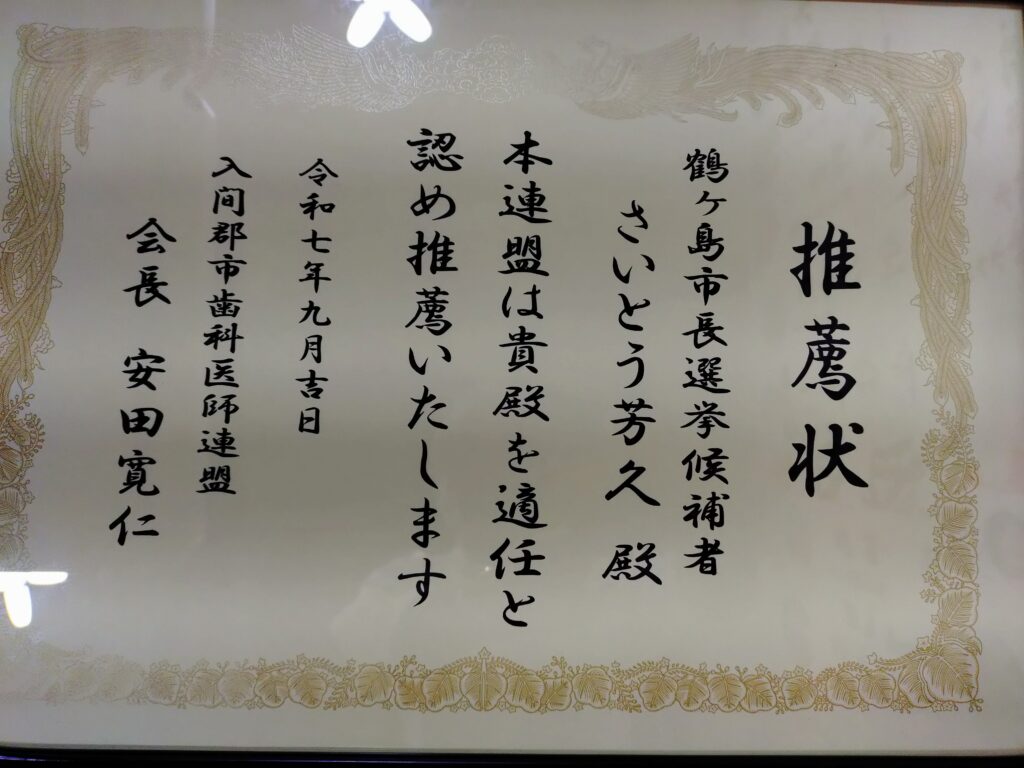 推薦状
鶴ヶ島市長選挙候補者
さいとう芳久 殿
本連盟は貴殿を適任と
認め推薦いたします
令和七年九月吉日
入間郡市歯科医師連盟
会長 安田寛仁